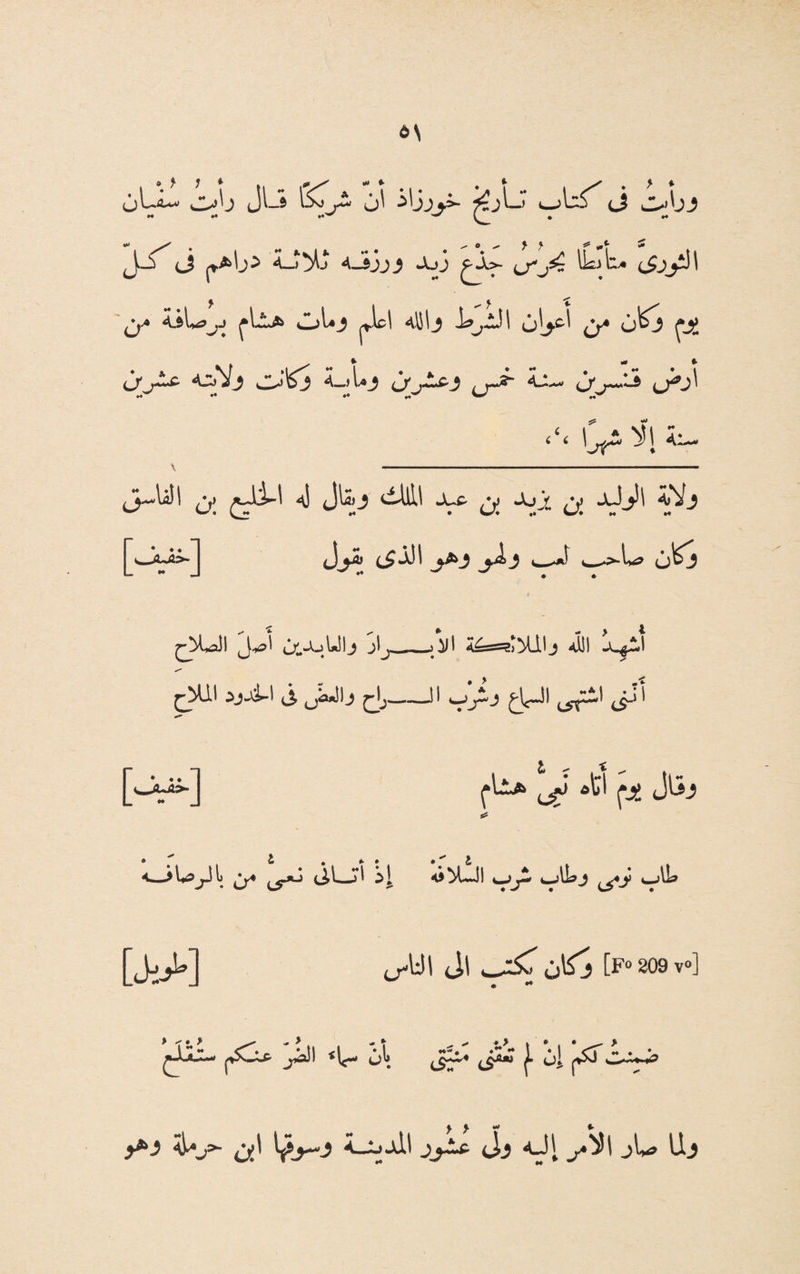 ٥١
ورأيتُ فى كتاب تأريخ خورزاذ أنّ شريكًا قال رأيتُ سُفْيان
الثورىّ يحرُس جِذْعَ زيد ورزقه ثلاثة دراهم فى كلّ
يوم وكان من أعوان الشُرَط والله اعلم ومات هشام برُصافة من
ارض قنّسرين سنة خمس وعشرين ومأية وكانت ولايته عشرين
سنة إلّا شهرًا
ولاية الوليد بن يزيد بن عبد الملك ويقال له الخليع بن الفاسق
وكان صاحب لعب ولهو وهو الذى يقول [خفيف]
أُشهِدُ الله والملائكة الأبرار والعابدين أهلَ الصلاح
أنّنى أشتهى السماع وشُرب الراح والعضَّ فى الخدود الملاح
وقال يومَ أتاه نَعىُ هشام [خفيف]
طاب نومى وطاب شرب السُلافهْ إذ أتانى نعىُ من بالرصافهْ
[F° 209 v°] وكان يكتب الى الناس [طويل]
ضمنتُ لكم إن لم تعقنى منيّتى بأن سماء الضرّ عنكم ستقلعُ
ولمّا صار الأمر إليه ولّى عشور المدينة وسوقها ابن حرملة وهو